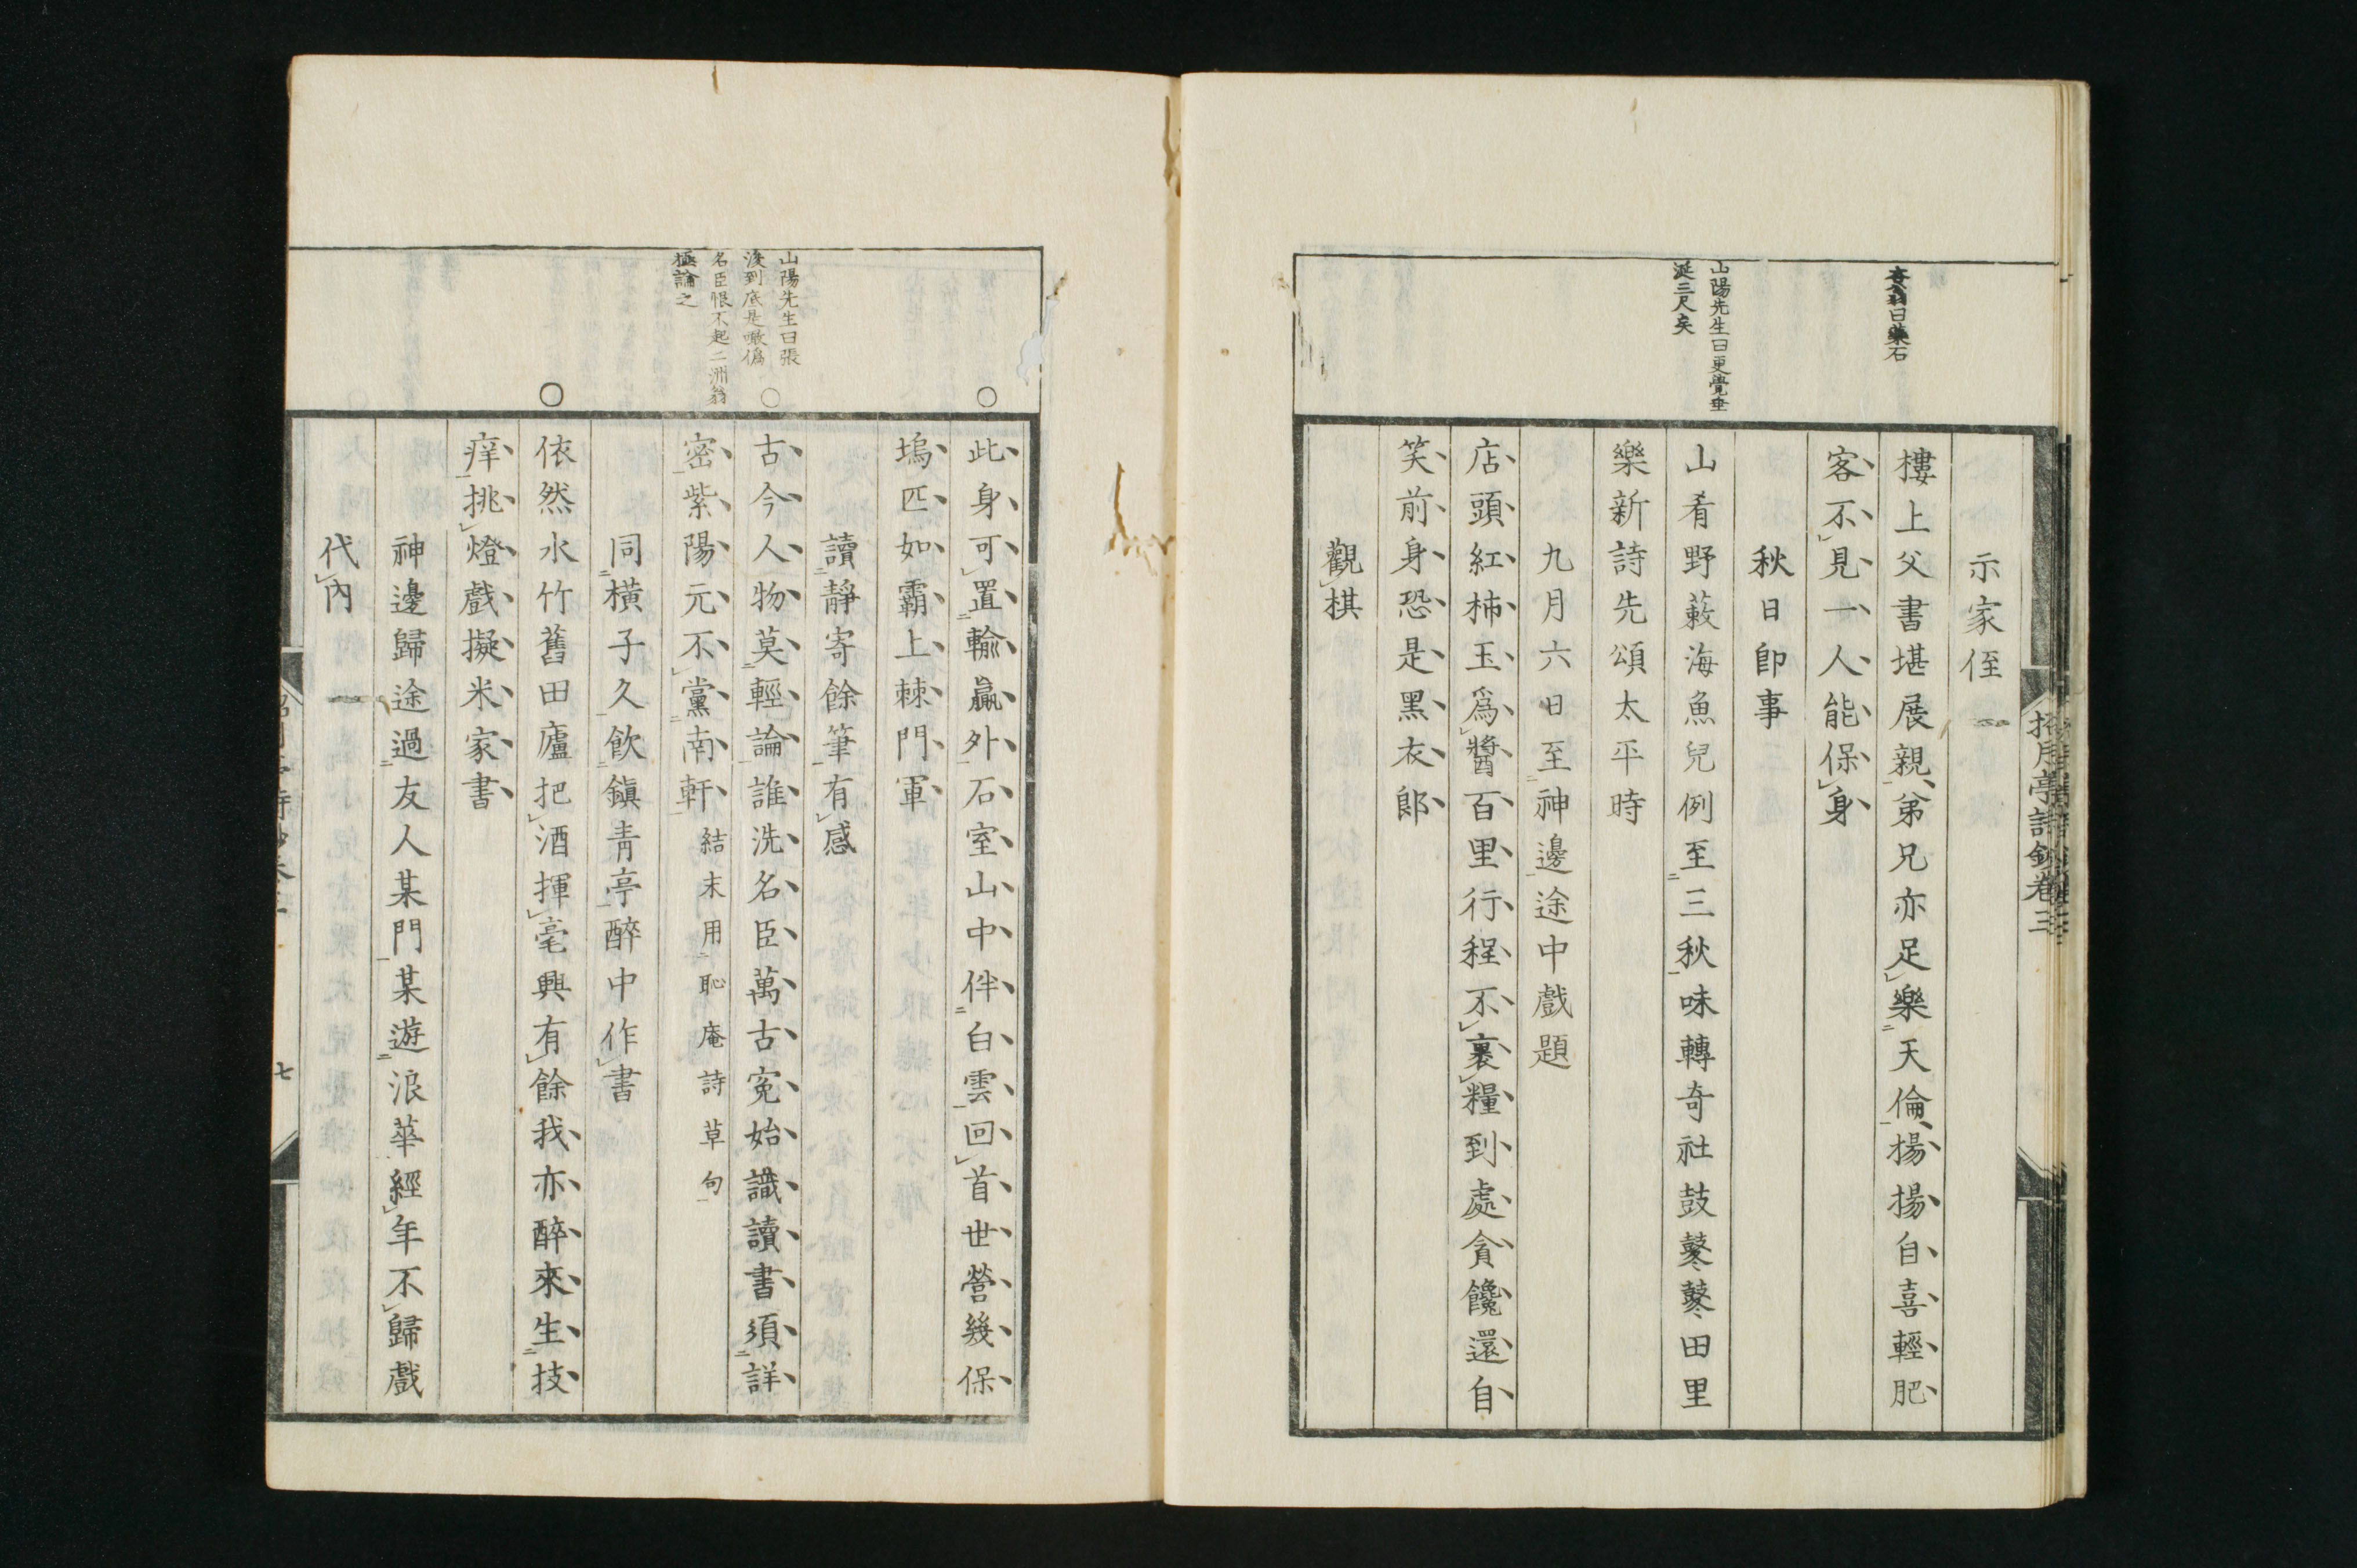 示家侄
樓上父書堪展親弟兄亦足樂天倫揚揚自喜輕肥
客不見一人能保身
秋日卽事
山肴野蔌海魚兒例至三秋味轉奇社鼓鼕鼕田里
樂新詩先頌太平時
九月六日至神邊途中戲題
店頭紅柿玉爲醬百里行程不裹糧到處貪饞還自
笑前身恐是黑衣郞
觀棋
翁曰藥石
山陽先生曰更覺垂
涎三尺矣
招月亭詩鈔卷三
此身可置輸贏外石室山中伴白雲回首世營幾保
塢匹如霸上棘門軍
讀靜寄餘筆有感
古今人物莫輕論誰洗名臣萬古寃始識讀書須詳
密紫陽元不黨南軒結末用恥庵詩草句
同橫子久飮鎭靑亭醉中作書
依然水竹舊田廬把酒揮毫興有餘我亦醉來生技
痒挑燈戲擬米家書
神邊歸途過友人某門某遊浪華經年不歸戲
代內
山陽先生曰張
浚到底是噉僞
名臣恨不起二洲翁
極論之
七